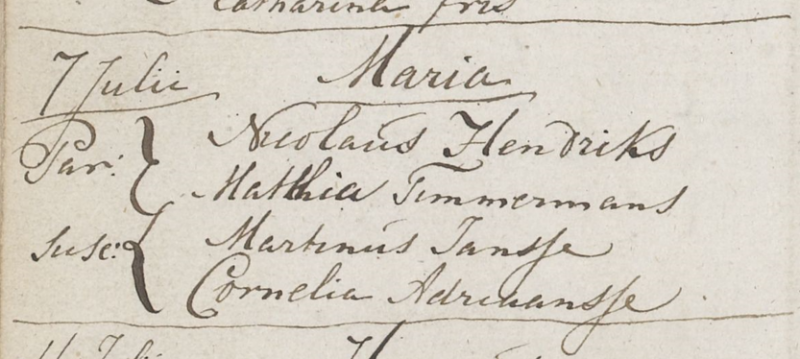 Catharina Fris
7 Julii Maria
Par: Nicolaus Hendriks
Matthia Timmermans
Susc: Martinus Jansse
Cornelia Adriaansse
11 Julii